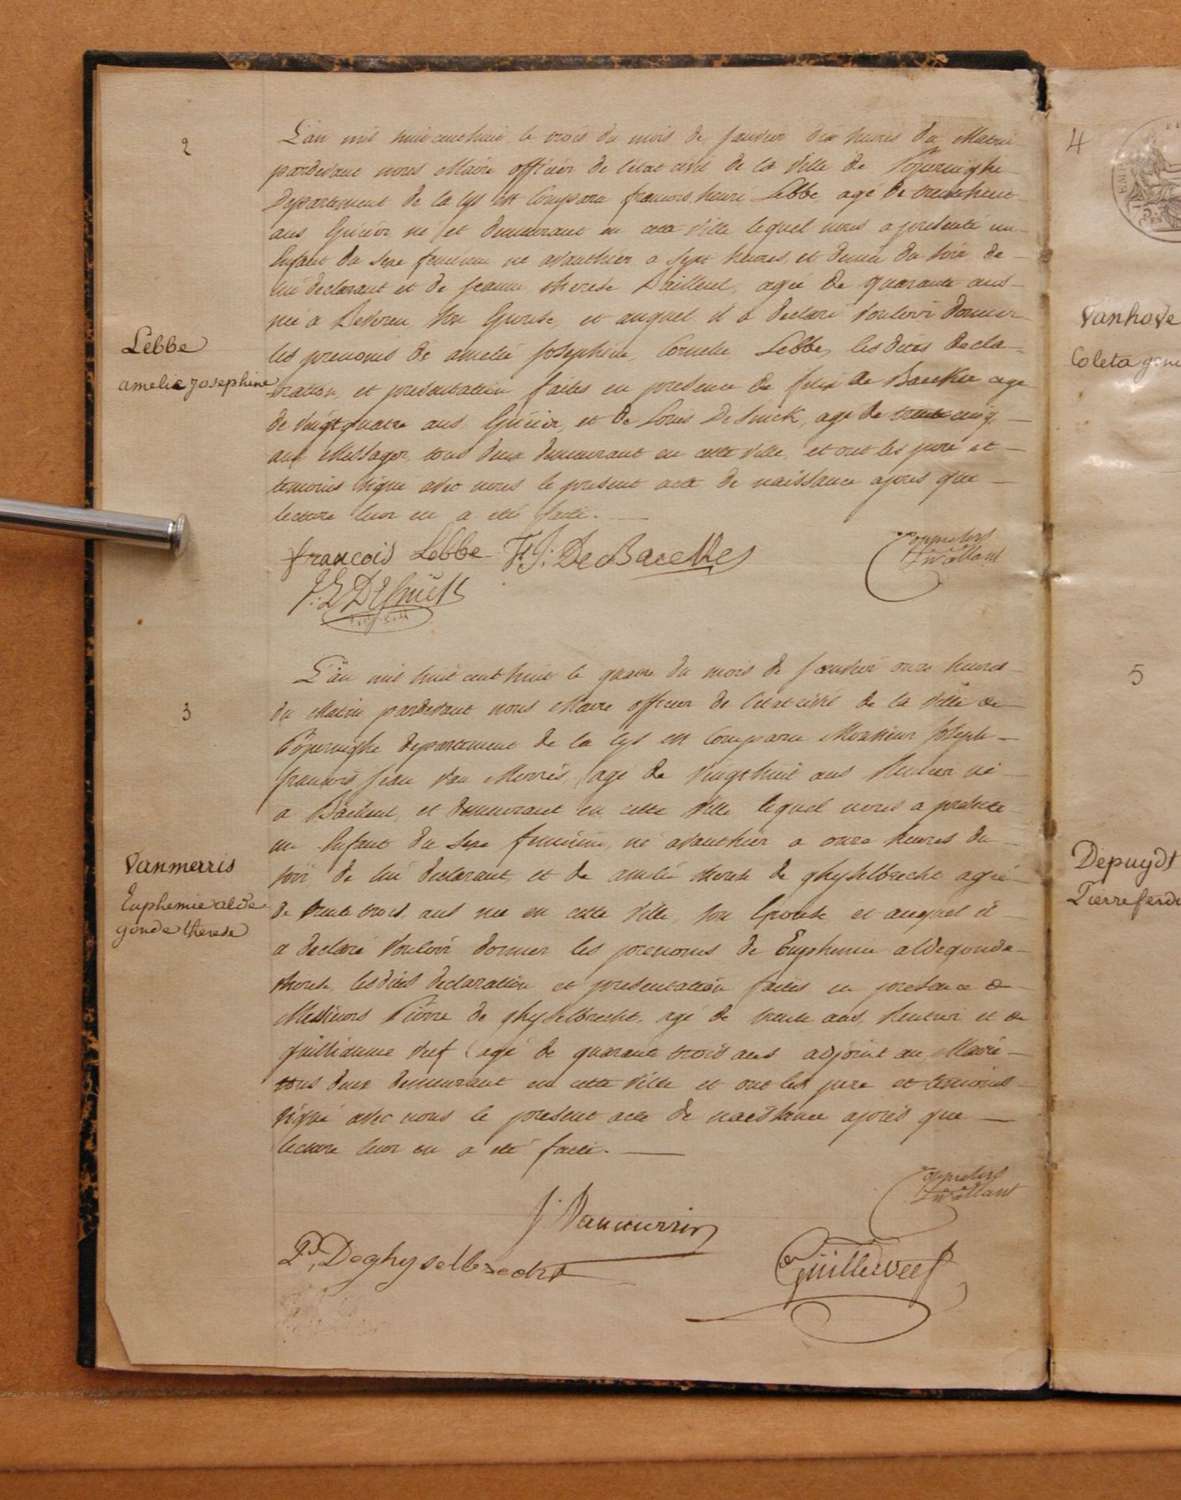 2
L'an mil huit cent huit le trois du mois de janvier dix heures du Matin
pardevant nous Maire officier de l'etat civil de la ville de Poperinghe
Departement de la lys est Comparu francois henri Lebbe, agé de trente huit
ans Epicier né et demeurant en cette ville lequel nous a presenté un
Enfant du sexe feminin né avanthier a sept heures et demie du soir de
lui declarant et de jeanne therese Bailleul, agée de quarante ans
née a son Epouse, et auquel il a declaré vouloir donner
Lebbe
les prenoms de amelie josephine Cornelie Lebbe, lesdites decla-
amelie josephine
ration et presentation faites en presence de felix de Backer agé
de vingt quatre ans Epicier, et de Louis , agé de trente cinq
ans Messager, tous deux demeurant en cette ville, et ont les pere et
temoins signé avec nous le present acte de naissance apres que
lecture leur en a été faite.
francois Lebbe F. J. De Backer
3
L'an mil huit cent huit le quatre du mois de janvier onze heures
du Matin pardevant nous Maire officier de l'etat civil de la ville de
Poperinghe departement de la lys est Comparu Monsieur Joseph
francois jean van Merris, agé de vingt huit ans Rentier né
a Bailleul, et demeurant en cette ville lequel nous a presenté
un Enfant du sexe feminin, né avanthier a onze heures du
Vanmerris
soir de lui declarant et de amelie therese de ghyselbrecht agée
Euphemie alde
de trente trois ans née en cette ville, son Epouse et auquel il
gonde therese
a declaré vouloir donner les prenoms de Euphemie aldegonde
therese, lesdites declaration et presentation faites en presence de
Messieurs Pierre de ghyselbrecht, agé de trente ans, Rentier et de
guilliaume veef agé de quarante trois ans adjoint au Maire
tous deux demeurant en cette ville et ont les pere et temoins
signé avec nous le present acte de naissance apres que
lecture leur en a été faite.
J. Vanmerris
P. Deghyselbrecht
Guille veef
4
Vanhove
Coleta
5
Depuydt
Pierre